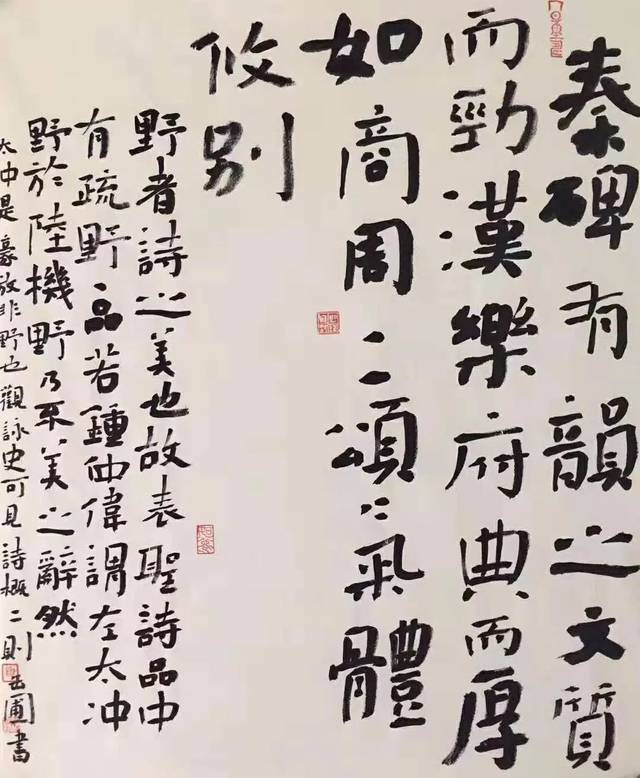 秦碑有韻之文質
而勁漢樂府典而厚
如商周二頌氣體
攸别
野者詩之美也故表聖詩品中
有疏野一品若鍾仲偉謂左太冲
野於陸機野乃不美之辭然
太冲是豪放非野也觀詠史可見 詩概二則 圃書